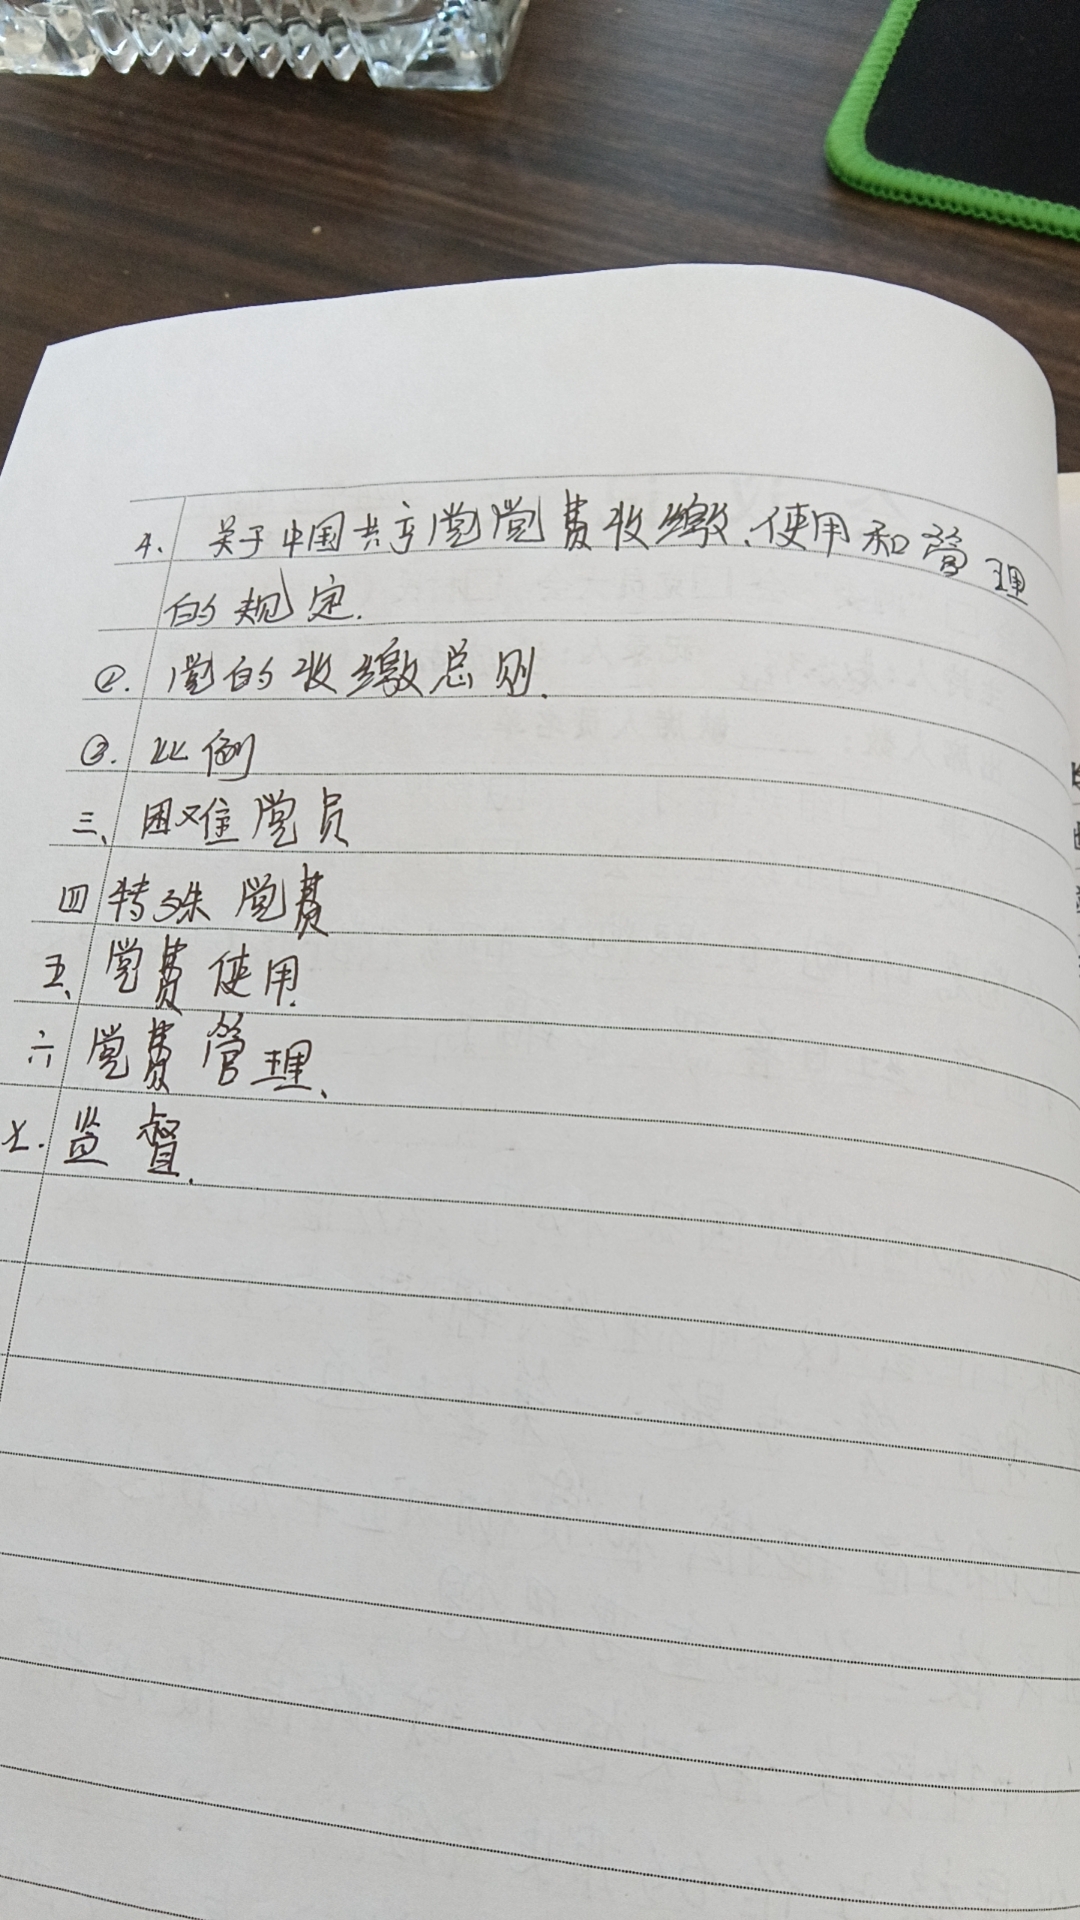 4、关于中国共产党党费收缴、使用和管理
的规定.
②. 党的收缴总则.
③. 比例
三、困难党员
四 特殊党费
五、党费使用.
六 党费管理、
七. 监督.